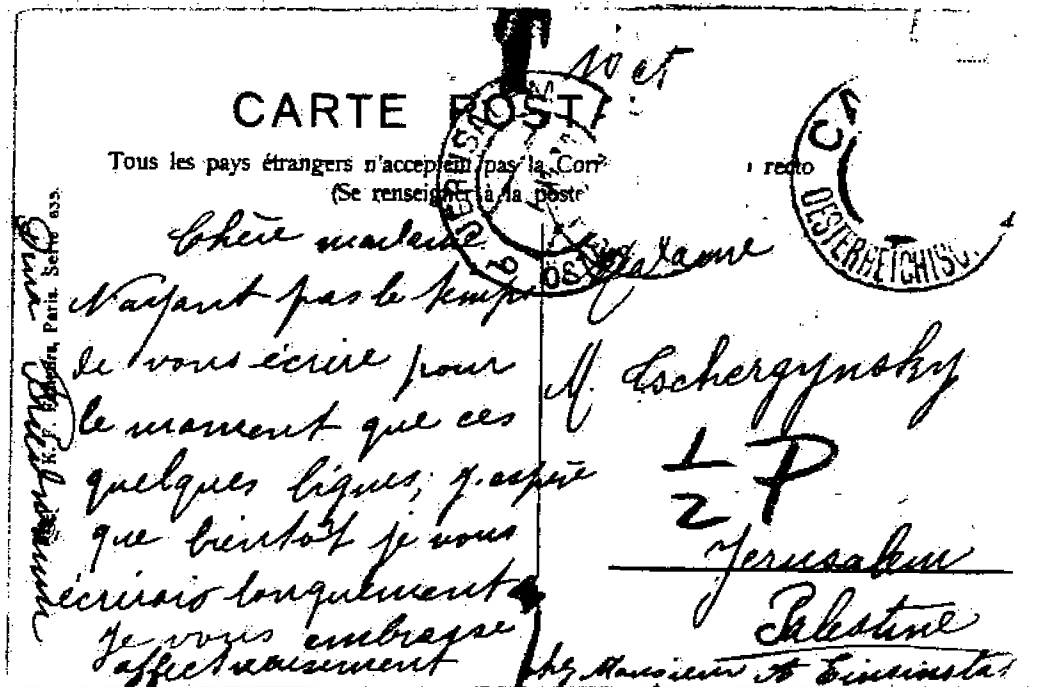 10 ct
CARTE POSTA
Tous les pays étrangers n'acceptent pas la Corr recto
(Se renseigner à la poste
JERUSALEM
OESTERREICHISC.
Chère madame
N'ayant pas le temps
de vous écrire pour
le moment que ces
quelques lignes, j'espère
que bientôt je vous
écrirais longuement
Je vous embrasse
affectueusement
Paris. Serie 635.
Madame
M. Eschergynsky
1/2 P
Jerusalem
Palestine
chez Monsieur A